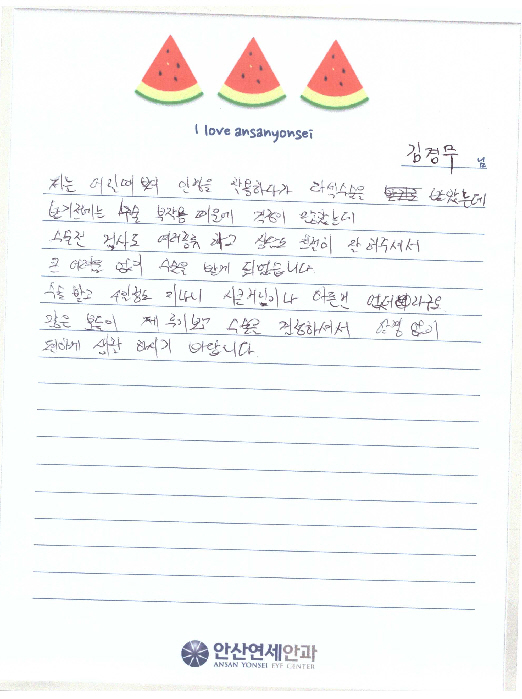 I love ansanyonsei
김경무 님
저는 어린때부터 안경을 착용하다가 라식수술을 받았는데
받기전에는 수술 부작용 때문에 걱정이 많았는데
수술전 검사도 여러종류 하고 상담도 원장이 잘 해주셔서
큰 어려움 없이 수술을 받게 되었습니다.
수술 받고 4일정도 지나니 시큰거림이나 아픈건 없더라구요
같은 분들이 제 후기보고 수술을 진행하셔서 안경 없이
편하게 생활 하시기 바랍니다.
안산연세안과
ANSAN YONSEI EYE CENTER